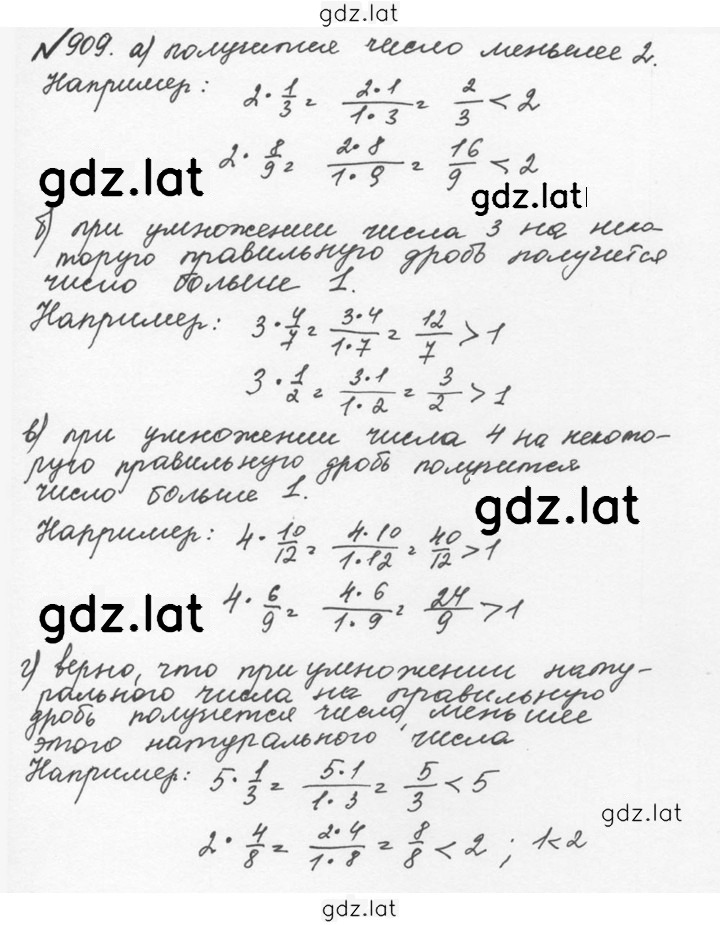 gdz.lat
№909. а) получится число меньшее 2.
Например: 2 · 1/3 = 2·1/1·3 = 2/3 < 2
2 · 8/9 = 2·8/1·9 = 16/9 < 2
gdz.lat
gdz.lat
б) при умножении числа 3 на неко-
торую правильную дробь получится
число больше 1.
Например: 3 · 4/7 = 3·4/1·7 = 12/7 > 1
3 · 1/2 = 3·1/1·2 = 3/2 > 1
в) при умножении числа 4 на некото-
рую правильную дробь получится
число больше 1.
gdz.lat
Например: 4 · 10/12 = 4·10/1·12 = 40/12 > 1
gdz.lat
4 · 6/9 = 4·6/1·9 = 24/9 > 1
г) верно, что при умножении нату-
рального числа на правильную
дробь получется число, меньшее
этого натурального числа
Например: 5 · 1/3 = 5·1/1·3 = 5/3 < 5
gdz.lat
2 · 4/8 = 2·4/1·8 = 8/8 < 2 ; 1<2
gdz.lat